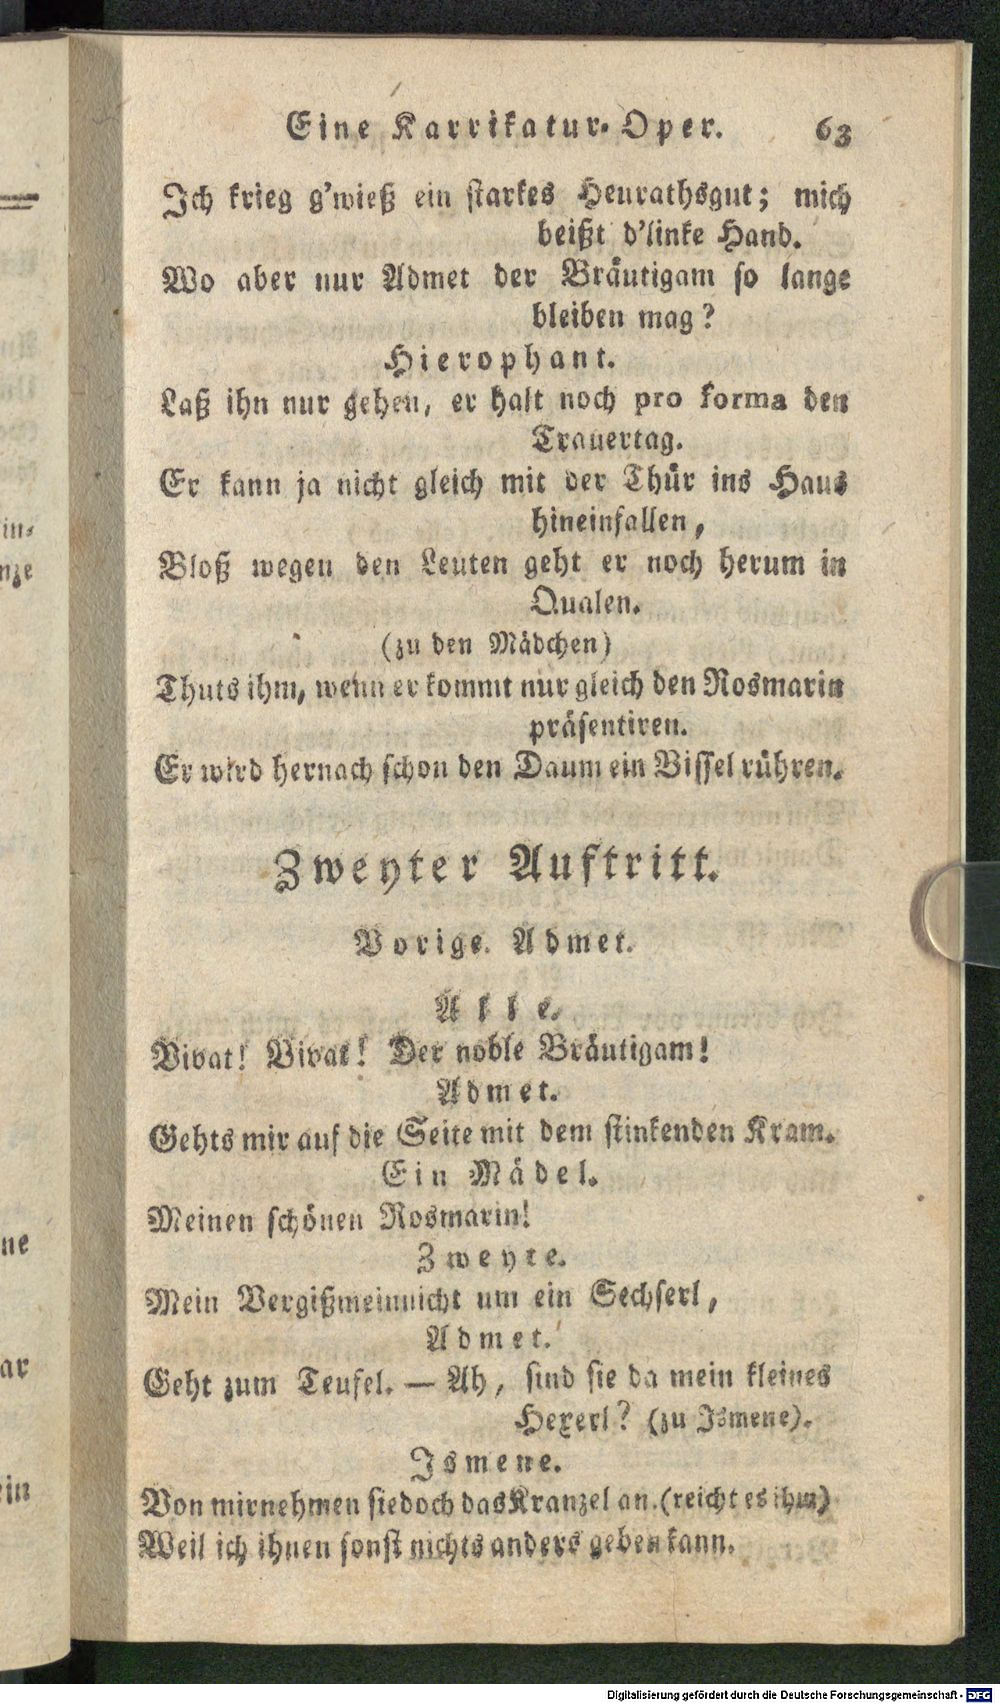 Eine Karrikatur-Oper. 63
Ich krieg g'wieß ein starkes Heurathsgut; mich
beißt d'linke Hand.
Wo aber nur Admet der Bräutigam so lange
bleiben mag?
Hierophant.
Laß ihn nur gehen, er halt noch pro forma den
Trauertag.
Er kann ja nicht gleich mit der Thür ins Haus
hineinfallen,
Bloß wegen den Leuten geht er noch herum in
Qualen.
(zu den Mädchen)
Thuts ihm, wenn er kommt nur gleich den Rosmarin
präsentiren.
Er wird hernach schon den Daum ein Bissel rühren.
Zweyter Auftritt.
Vorige. Admet.
Alle.
Vivat! Vivat! Der noble Bräutigam!
Admet.
Gehts mir auf die Seite mit dem stinkenden Kram.
Ein Mädel.
Meinen schönen Rosmarin!
Zweyte.
Mein Vergißmeinnicht um ein Sechserl,
Admet.
Geht zum Teufel. — Ah, sind sie da mein kleines
Hexerl? (zu Ismene).
Ismene.
Von mir nehmen sie doch das Kranzel an. (reicht es ihm)
Weil ich ihnen sonst nichts anders geben kann.
in-
nze
ne
ar
ein
Digitalisierung gefördert durch die Deutsche Forschungsgemeinschaft - DFG